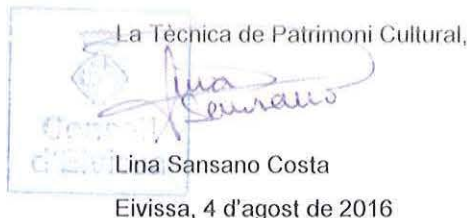 La Tècnica de Patrimoni Cultural,
Lina
Sansano
Consell
d'Eivissa
Lina Sansano Costa
Eivissa, 4 d'agost de 2016